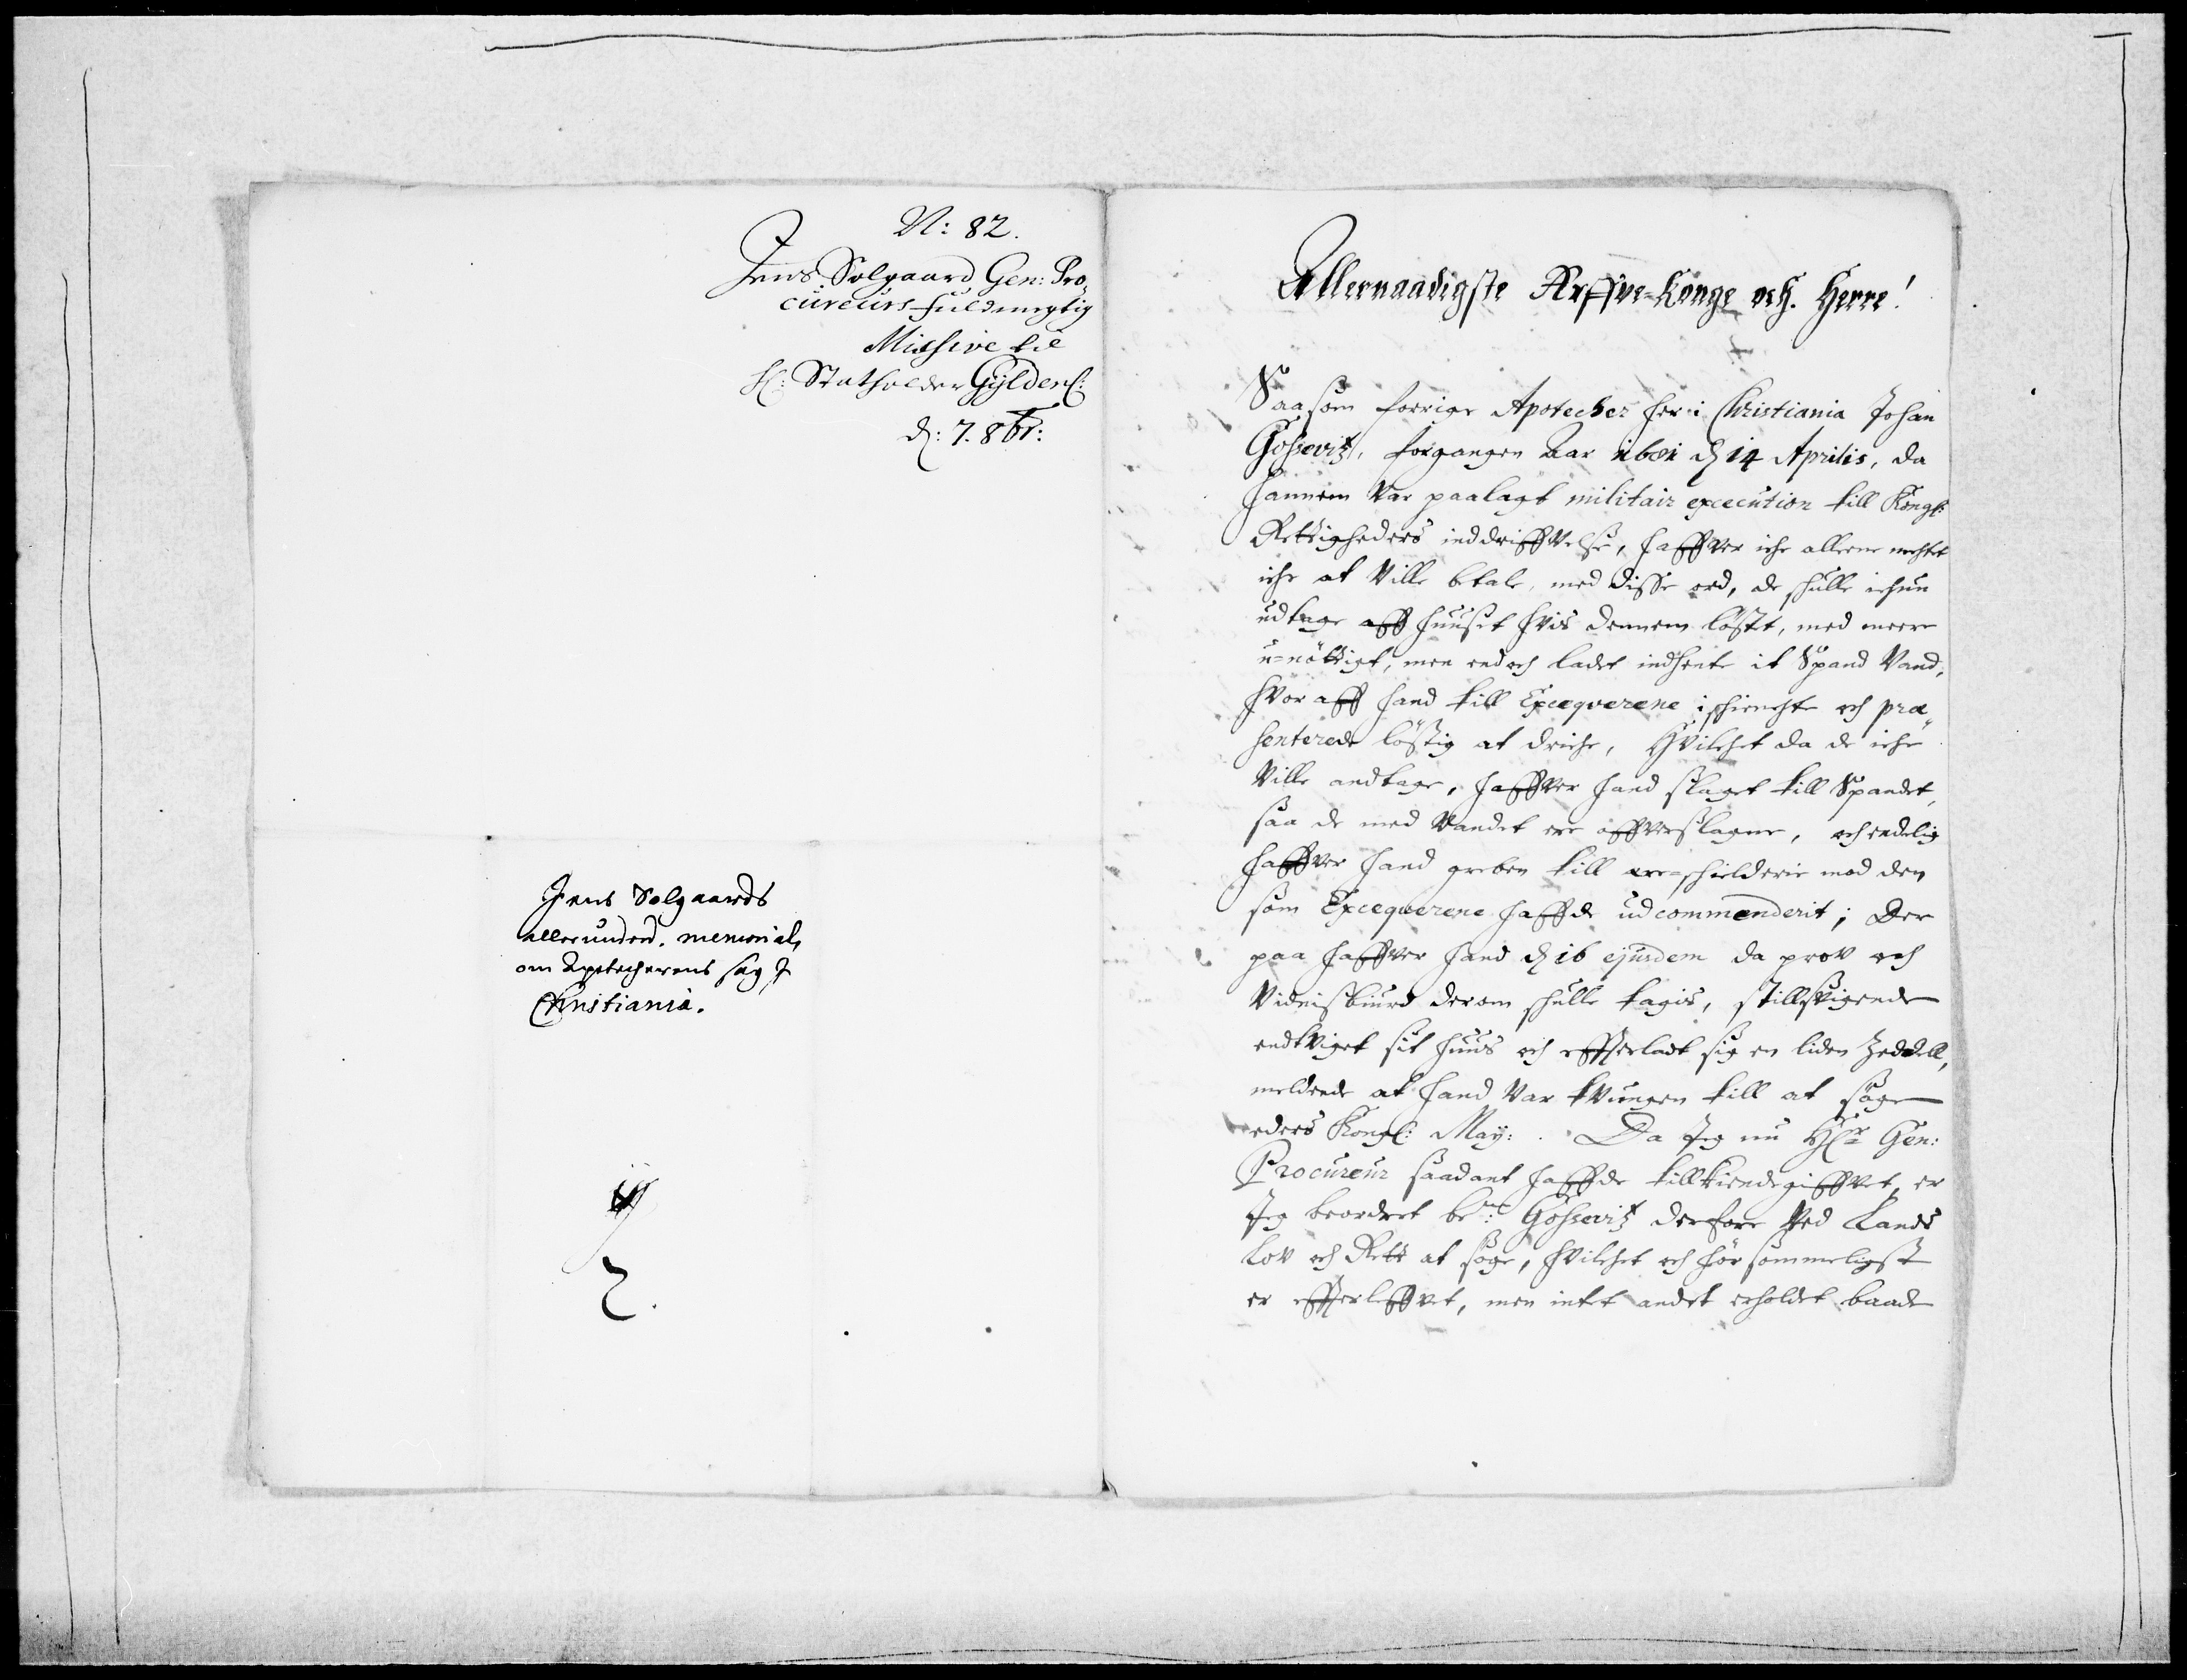 N: 82.
Jens Solgaard Gen: Pro
cüreurs fuldmegtig
Missive til
H: Statholder Gÿldenl:
d: 7. 8br:
Jens Solgaards
allerunderd. memorial,
om Apotecherens sag J
Christiania.
2.
Allernaadigste Arffve-Konge och Herre!
Saasom forrige Apotecker her i Christiania Johan
Gosseviz, forgangen Aar 1681 d 14 Aprilis, da
hannem var paalagt militair execution till Kongl:
Rettigheders inddriffvelse, haffver iche alleene negtet
iche at ville betale, med disse ord, de skulle ichun
udtage aff huuset hvis dennem löstet, med meere
u-nöttigt, men end och ladet indhente it Spand Vand,
hvor aff hand till Exceqverene ischienchte och præ
senterede löstig at driche, Hvilchet da de iche
ville andtage, haffver hand slaget till Spandet,
saa de med Vandet ere offverslagne, och endelig
haffver hand greben till ære-schielderie mod den
som Exceqverene haffde udcommenderit; Der
paa haffver hand d 16 ejusdem da prov och
Vidnisbiurd derom skulle tagis, stillswigende
endtviget sit huus och effterladt sig en liden Zeddell,
meldende at hand var tvungen till at söge
eders Kongl: May: . Da Jeg nu Hr Gen:
Procureur saadant haffde tillkiendegiffvet, er
Jeg beordret bete: Gosseviz derfore Ved Lands
Lov och Rett at söge, hvilchet och hörsommeligst
er effterleffvet, men intet andet erholdet baade